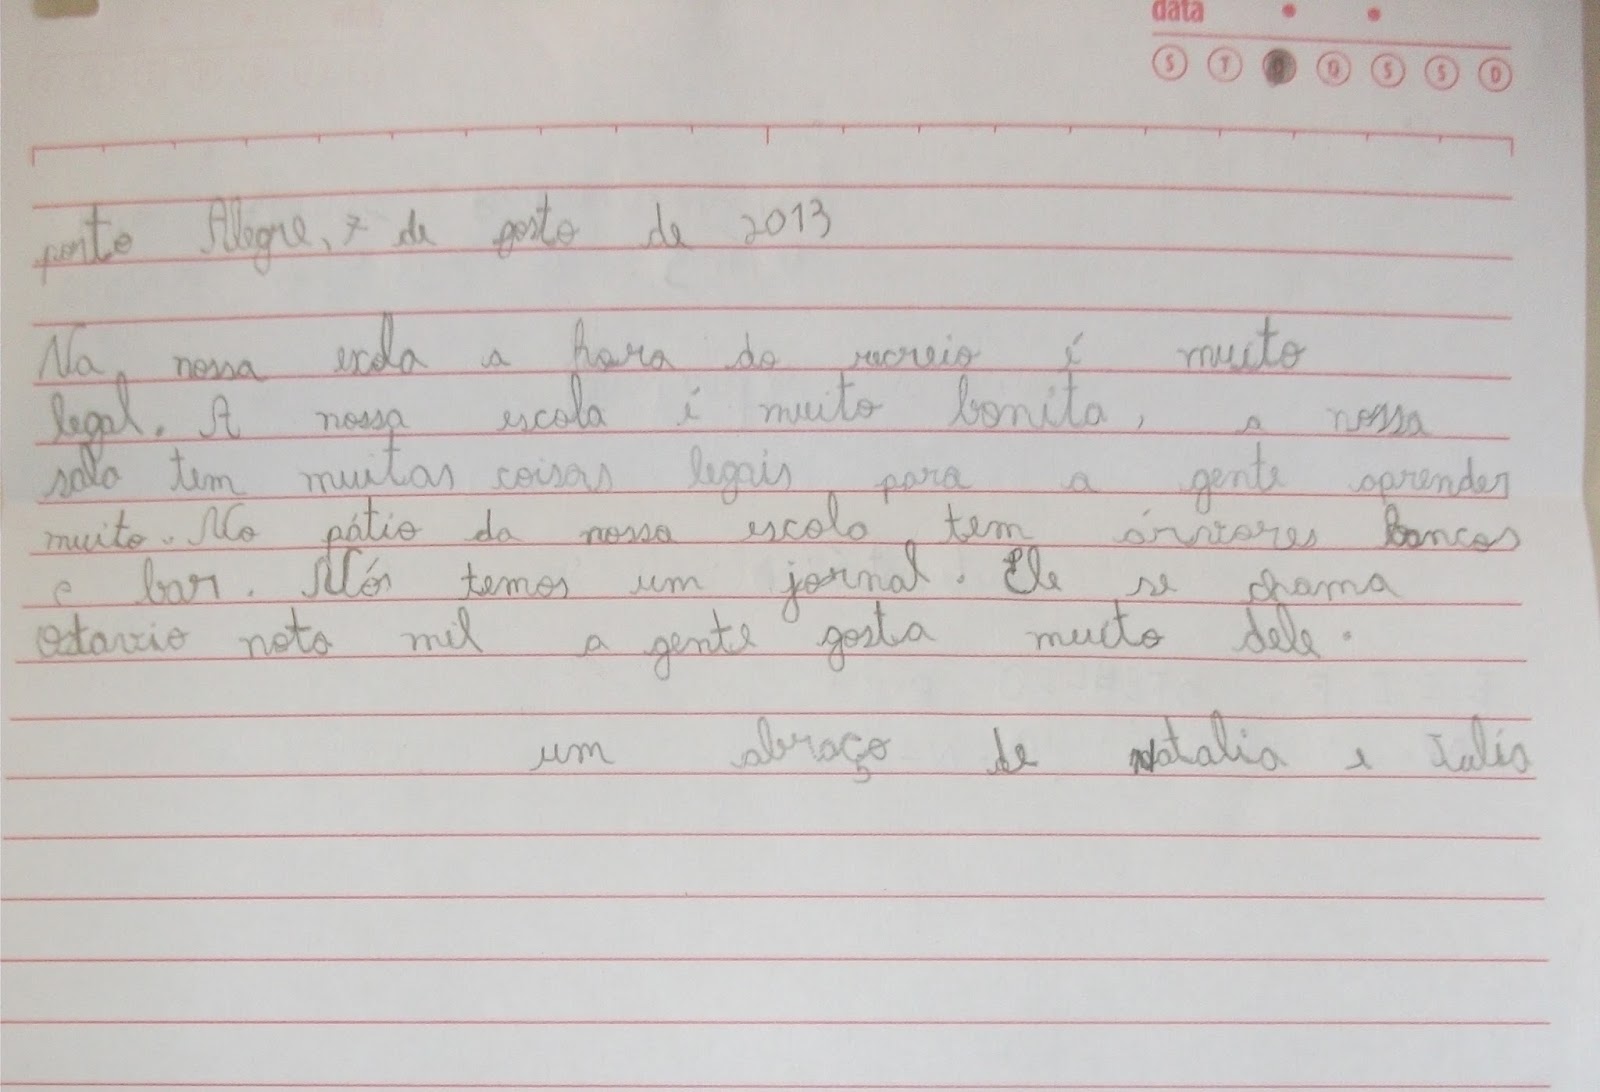 data
S T Q Q S S D
porto Alegre, 7 de gosto de 2013
Na nossa escola a hora do recreio é muito
legal. A nossa escola é muito bonita, a nossa
sala tem muitas coisas legais para a gente aprender
muito. No pátio da nossa escola tem árvores bancos
e bar. Nós temos um jornal. Ele se chama
Otavio nota mil a gente gosta muito dele.
um abraço de Natalia e Julia